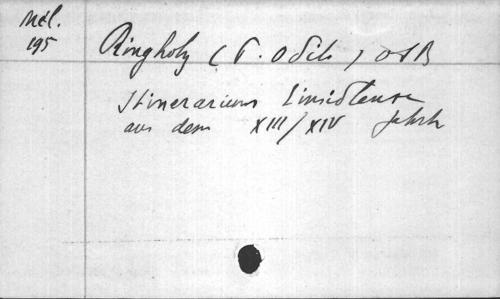 Mél.
195
Ringholz (P. Odilo) OSB
Itinerarium Einsidlense
aus dem XIII/XIV Jahrh